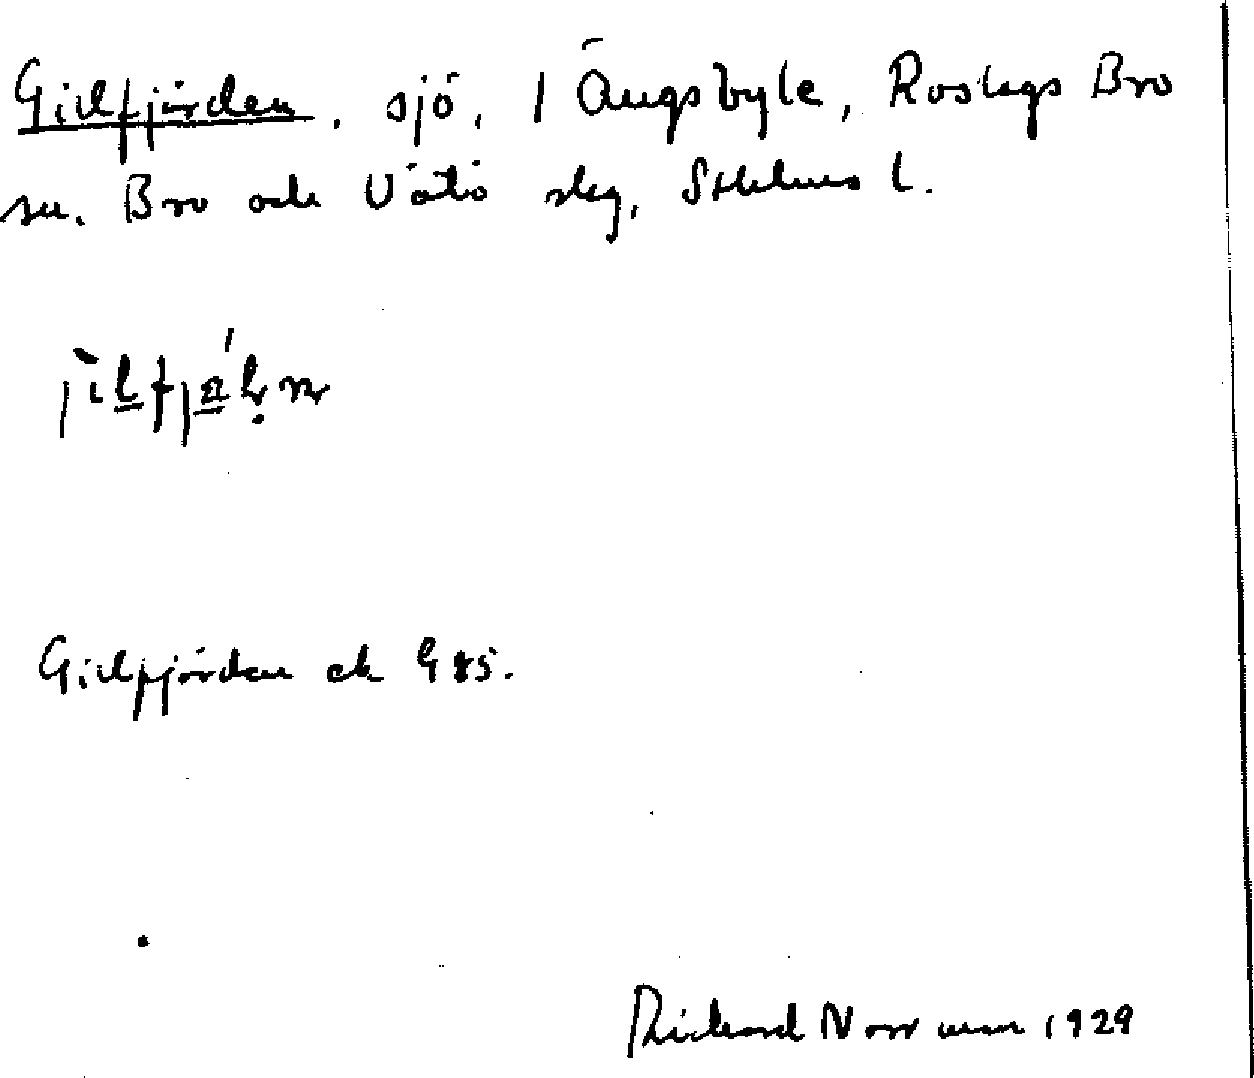 Gidfjärden, sjö, 1 Ängsbyle, Roslags Bro
sn. Bro och Vätö slg, Sthlms l.
Gidfjärden ek 985.
Richard Norrman 1929